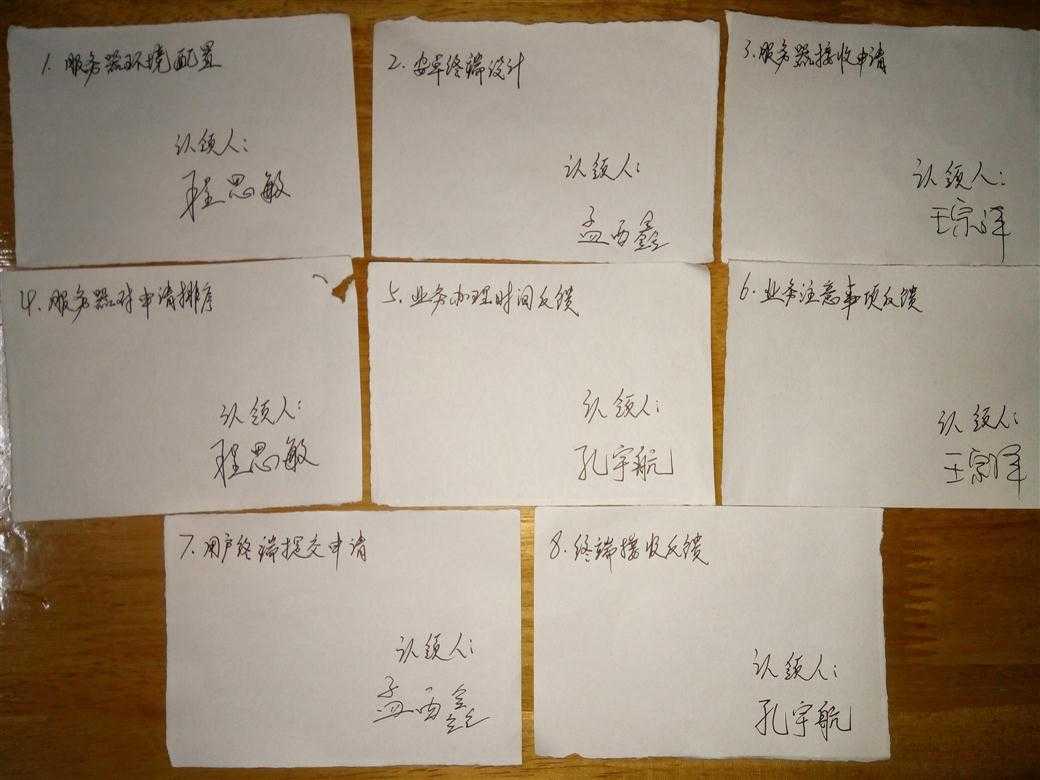 1. 服务器环境配置
认领人:
程思敏
2. 安卓终端设计
认领人:
孟西鑫
3. 服务器接收申请
认领人:
王宗洋
4. 服务器对申请排序
认领人:
程思敏
5. 业务办理时间反馈
认领人:
孔宇航
6. 业务注意事项反馈
认领人:
王宗洋
7. 用户终端提交申请
认领人:
孟西鑫
8. 终端接收反馈
认领人:
孔宇航